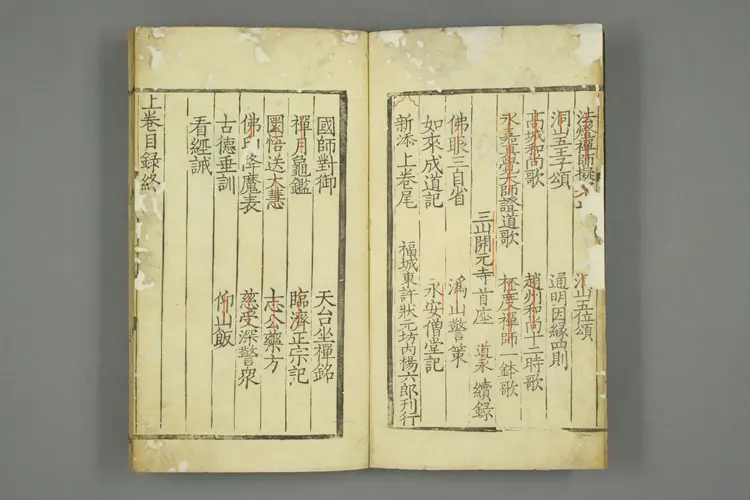 法燈禪師擬
洞山五王子頌 洞山五位頌
高城和尚歌 通明因緣四則
永嘉真覺大師證道歌 趙州和尚十二時歌
杯度禪師一鉢歌
三山開元寺首座 道永 續錄
佛眼三自省 潙山警策
如來成道記 永安僧堂記
新添上卷尾 福城東許狀元坊內楊六郎刊行
國師對御 天台坐禪銘
禪月龜鑑 臨濟正宗記
圜悟送大慧 志公藥方
佛印降魔表 慈受深警衆
古德垂訓 仰山飯
看經誡
上卷目録終